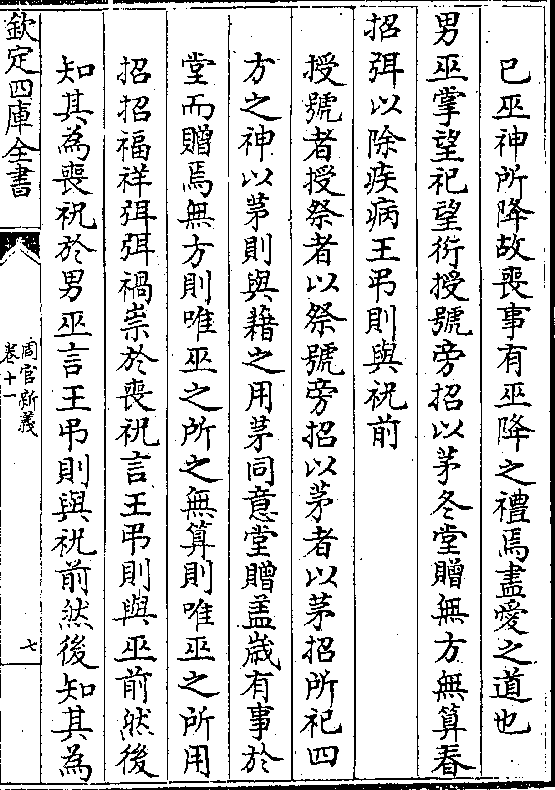 已巫神所降故喪事有巫降之禮焉盡愛之道也
男巫掌望祀望衍授號旁招以茅冬堂贈無方無算春
招弭以除疾病王弔則與祝前
授號者授祭者以祭號旁招以茅者以茅招所祀四
方之神以茅則與藉之用茅同意堂贈蓋歲有事於
堂而贈焉無方則唯巫之所之無算則唯巫之所用
招招福祥弭弭禍祟於喪祝言王弔則與巫前然後
知其為喪祝於男巫言王弔則與祝前然後知其為
欽定四庫全書
周官新義
卷十一
七